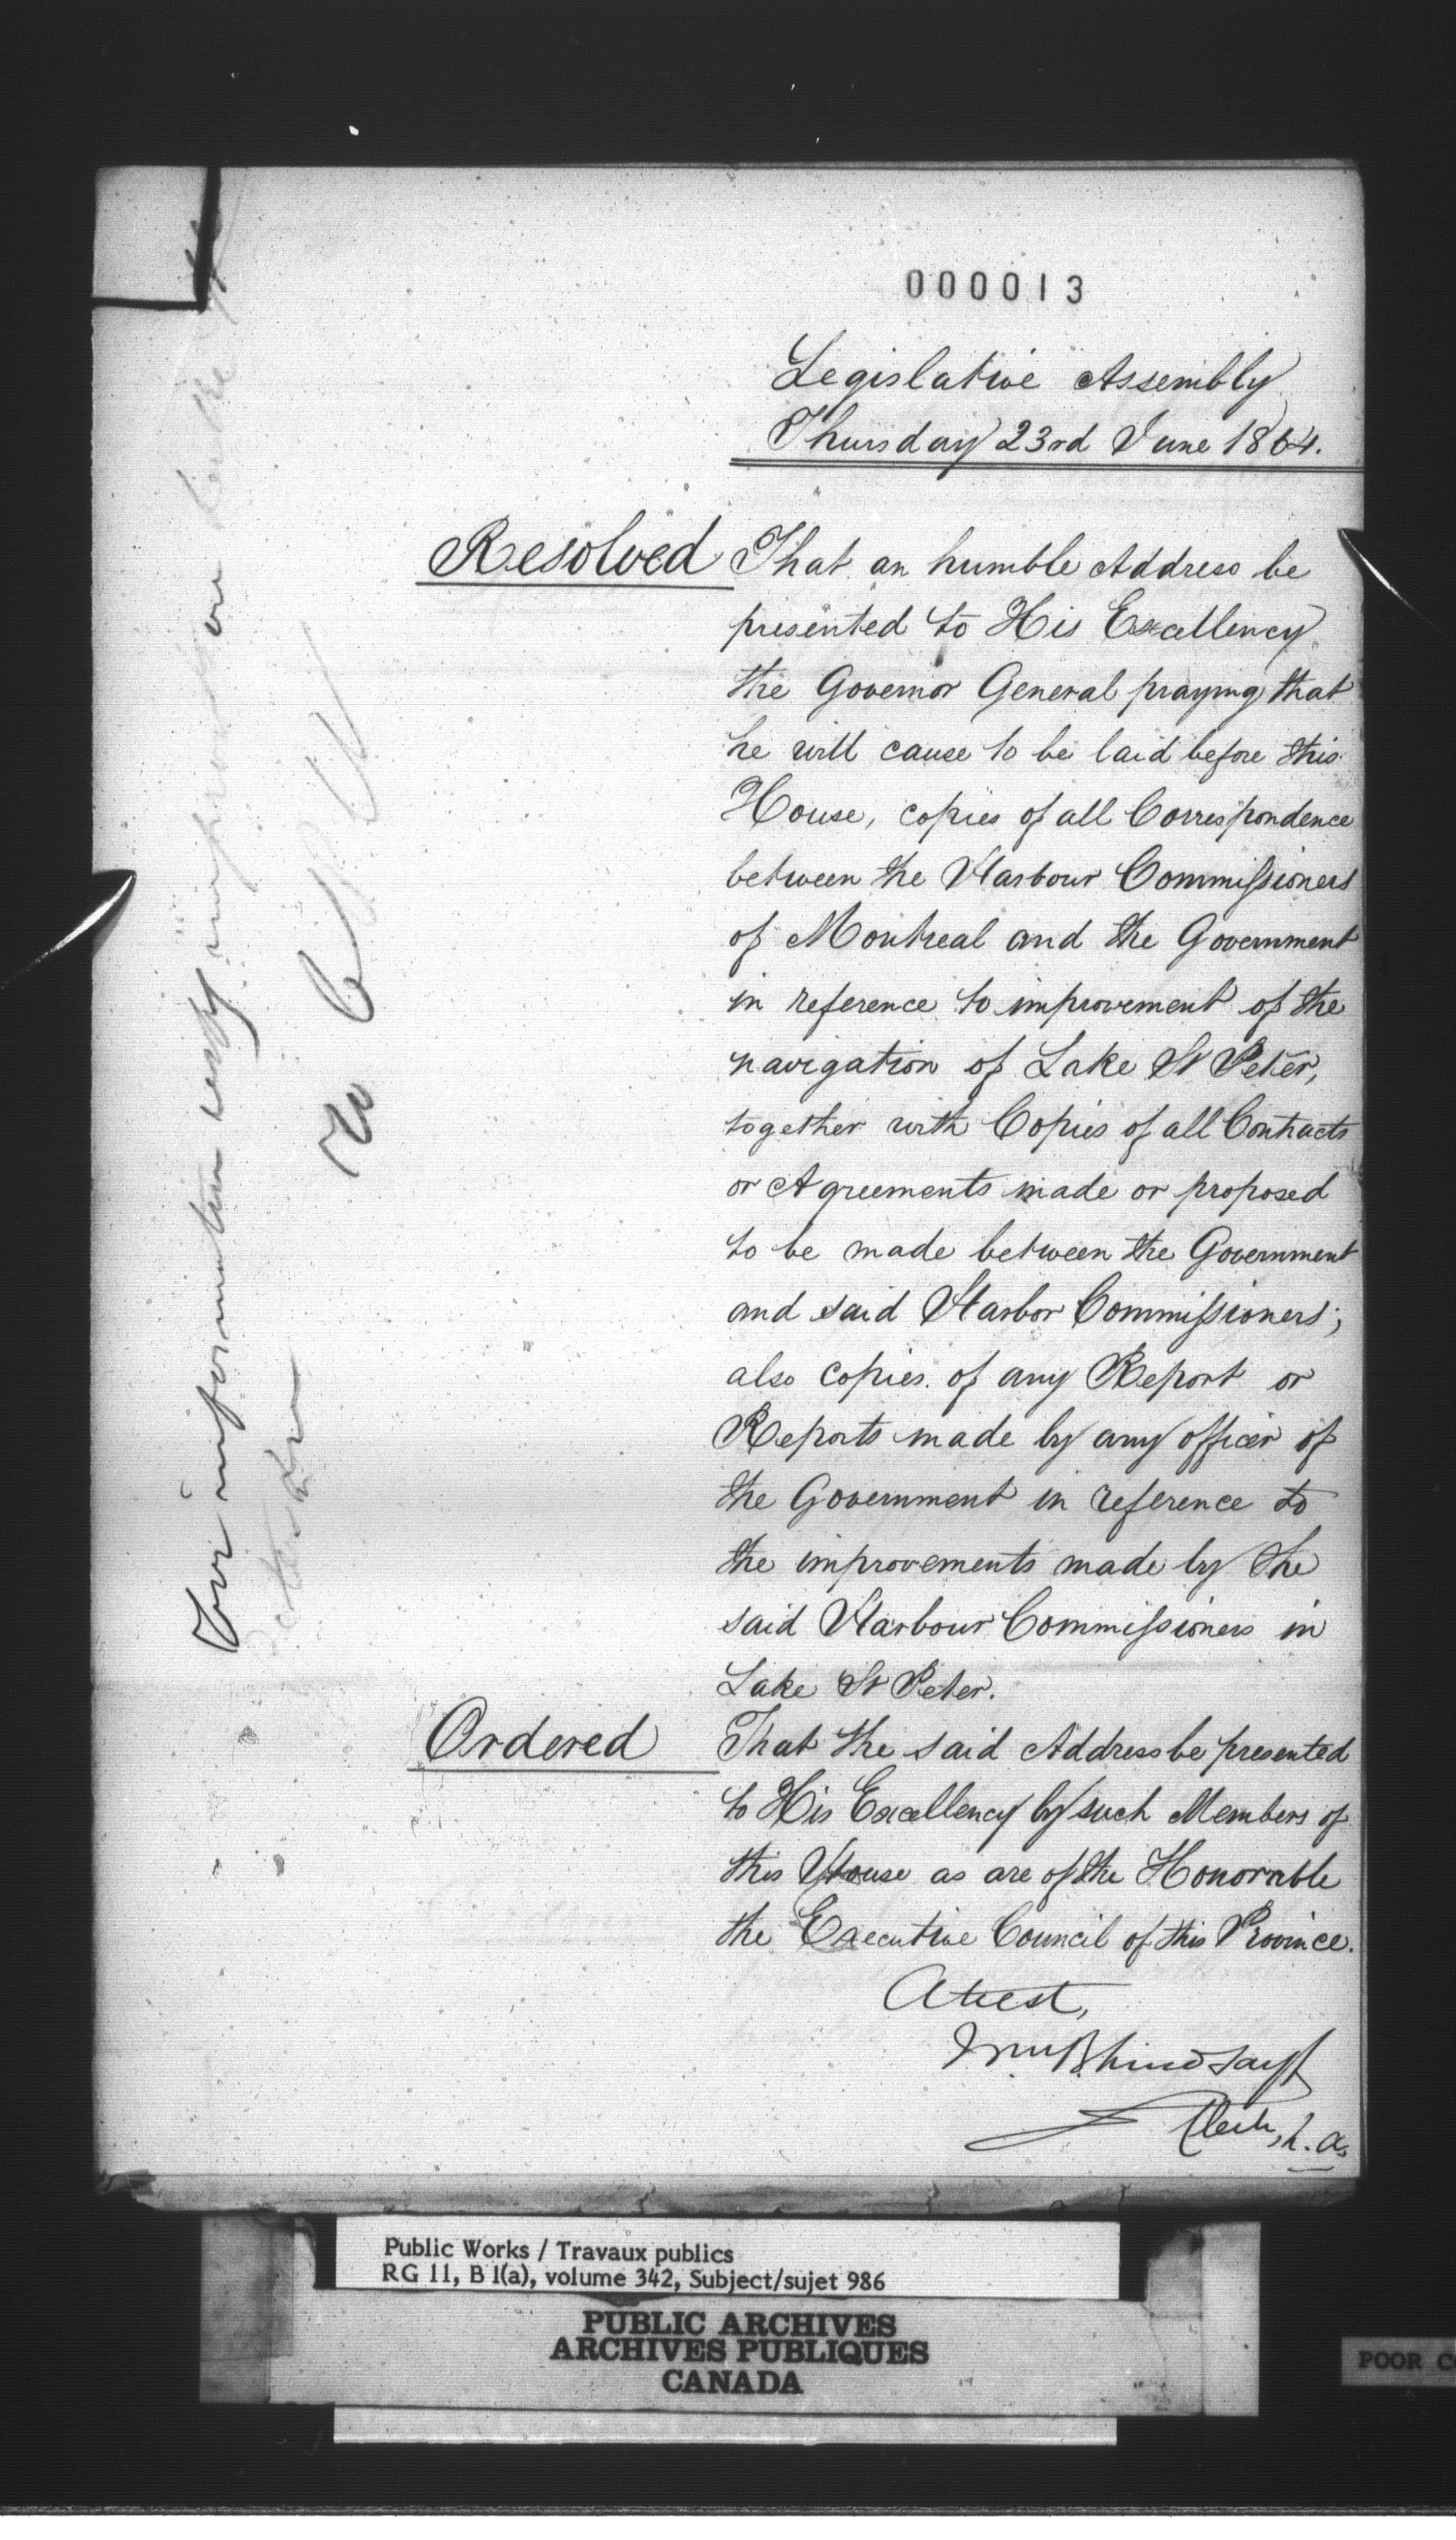 000013
Legislative Assembly
Thursday 23rd June 1864.
Resolved That an humble Address be
presented to His Excellency
the Governor General praying that
he will cause to be laid before this
House, copies of all Correspondence
between the Harbour Commissioners
of Montreal and the Government
in reference to improvement of the
navigation of Lake St Peter,
together with Copies of all Contracts
or Agreements made or proposed
to be made between the Government
and said Harbor Commissioners;
also copies of any Report or
Reports made by any officer of
the Government in reference to
the improvements made by the
said Harbour Commissioners in
Lake St Peter.
Ordered That the said Address be presented
to His Excellency by such Members of
this House as are of the Honorable
the Executive Council of this Province.
Attest,
Wm B. Lindsay
Clerk, L. A.
For information
Public Works / Travaux publics
RG 11, B 1(a), volume 342, Subject/sujet 986
PUBLIC ARCHIVES
ARCHIVES PUBLIQUES
CANADA
POOR